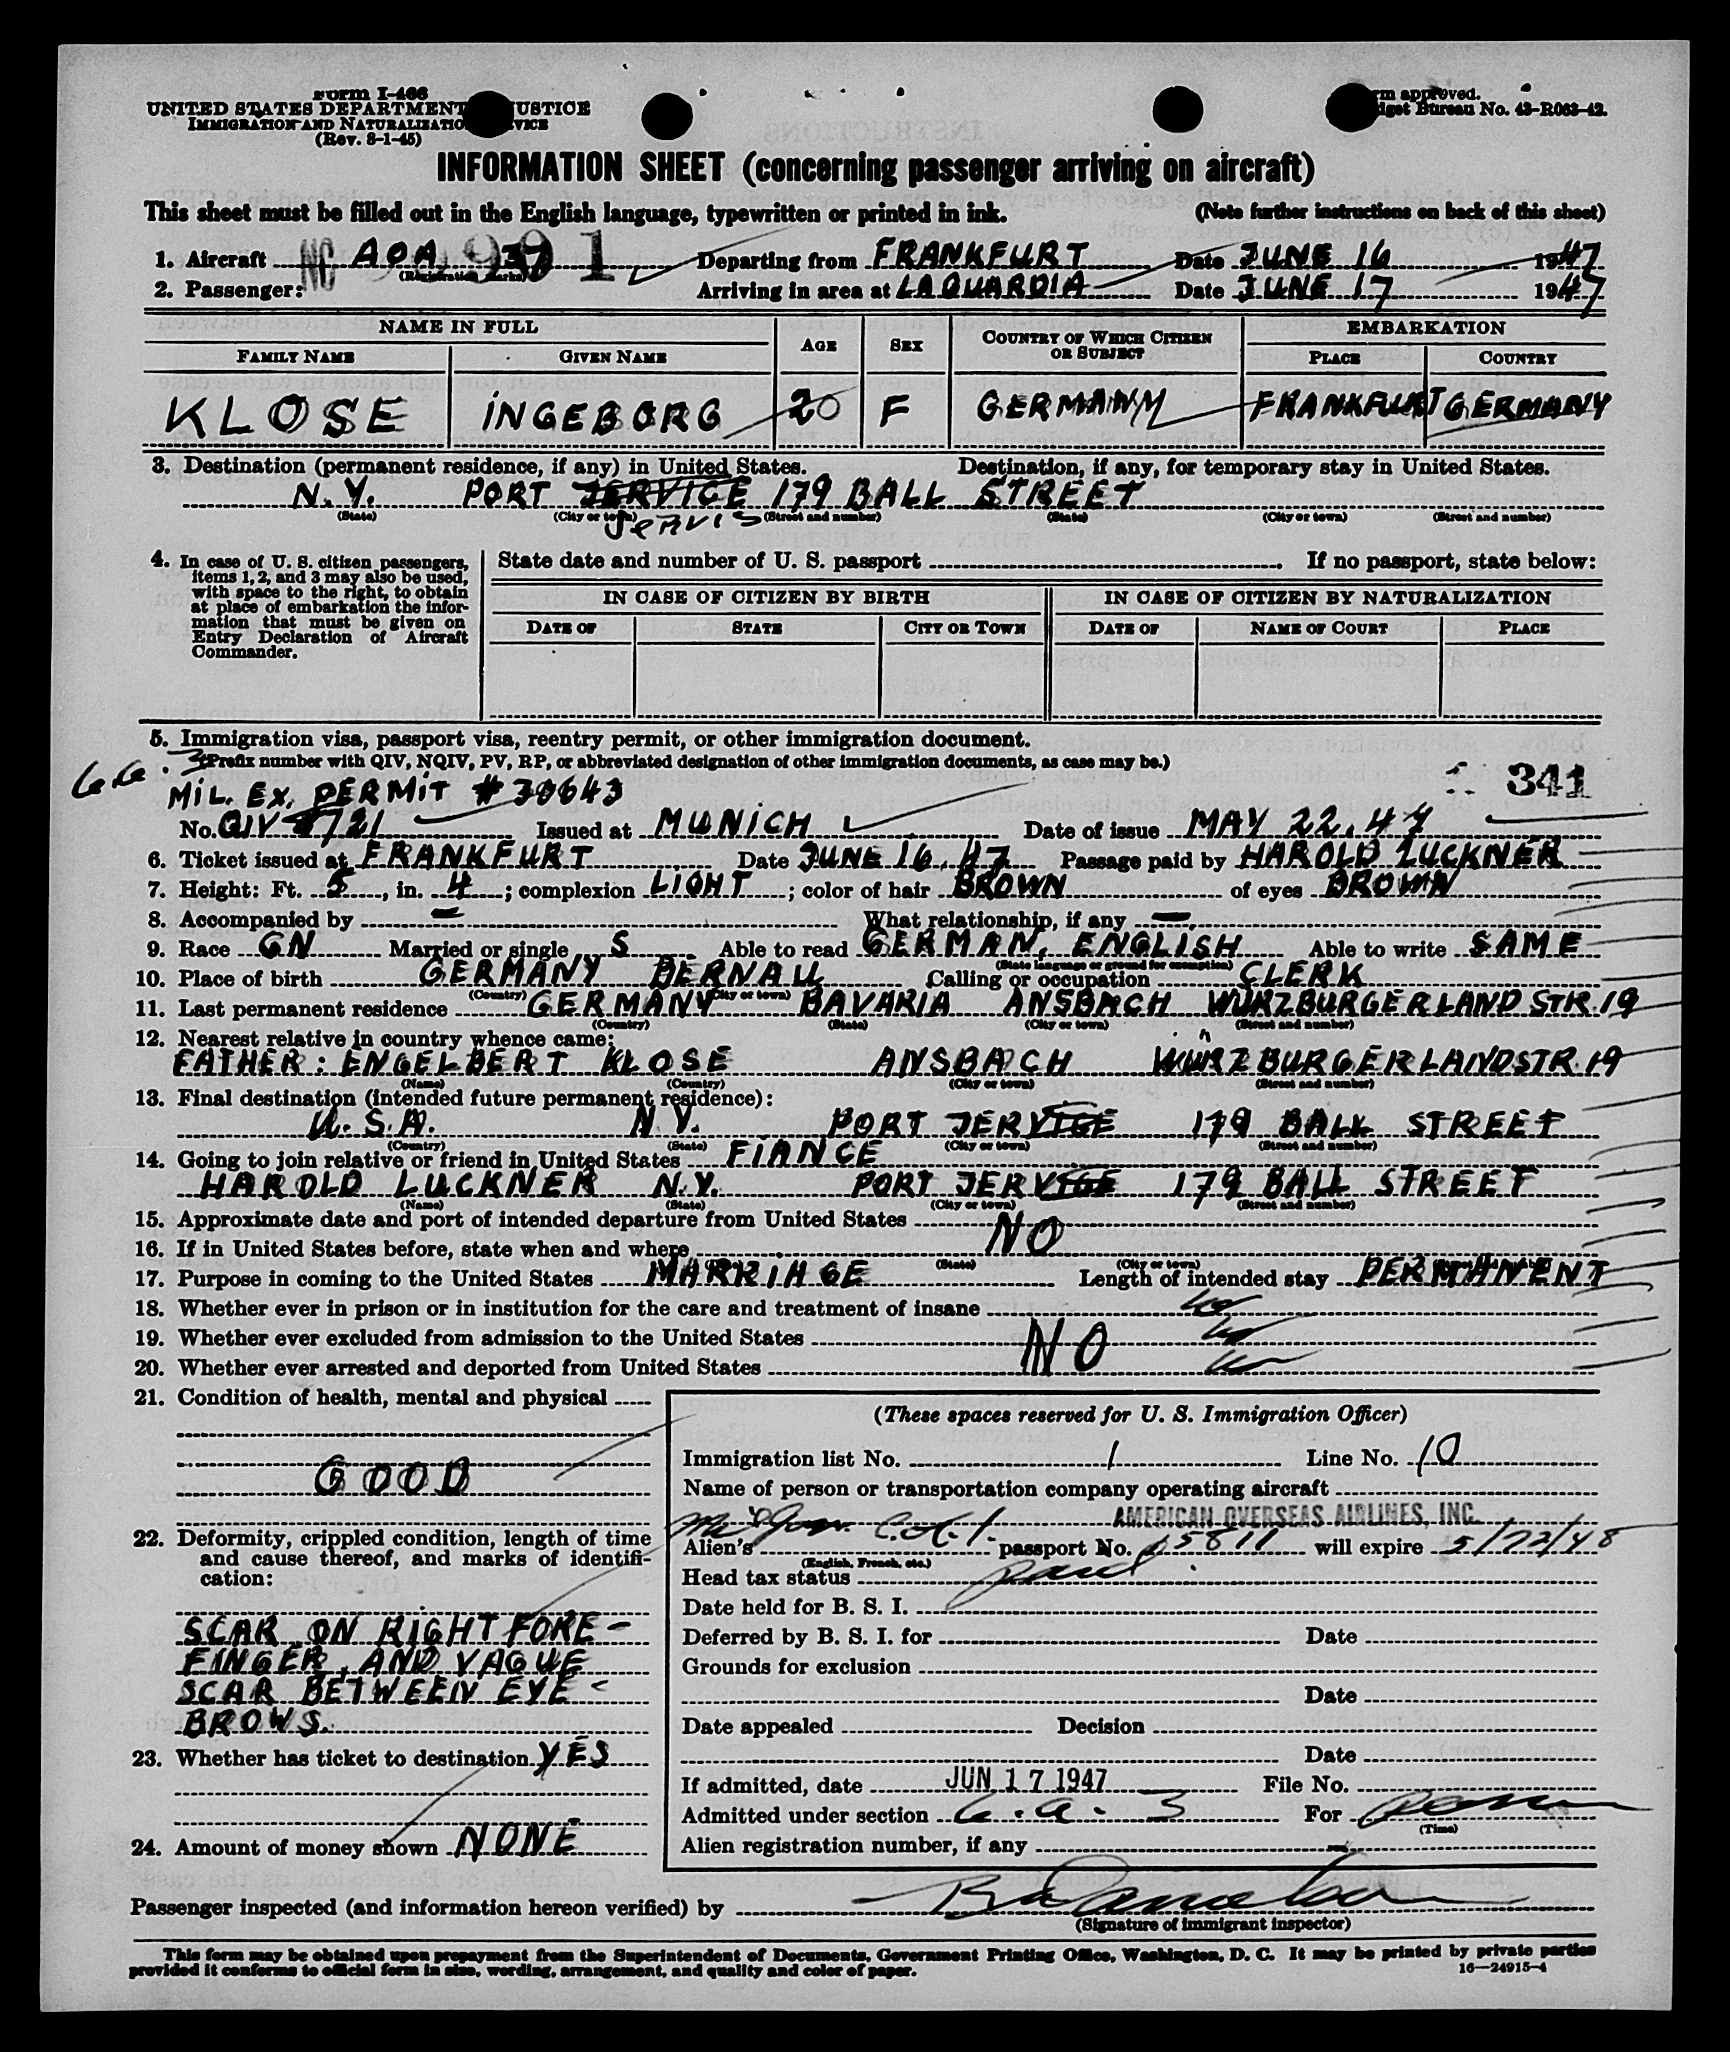 Form I-466
UNITED STATES DEPARTMENT JUSTICE
IMMIGRATION AND NATURALIZATION SERVICE
(Rev. 8-1-45)
Form approved.
Budget Bureau No. 43-R063-42.
INFORMATION SHEET (concerning passenger arriving on aircraft)
This sheet must be filled out in the English language, typewritten or printed in ink. (Note further instructions on back of this sheet)
1. Aircraft NC AOA (Registration marks) Departing from FRANKFURT Date JUNE 16 1947
2. Passenger: Arriving in area at LAGUARDIA Date JUNE 17 1947
NAME IN FULL AGE SEX COUNTRY OF WHICH CITIZEN OR SUBJECT EMBARKATION
FAMILY NAME GIVEN NAME PLACE COUNTRY
KLOSE INGEBORG 20 F GERMANY FRANKFURT GERMANY
3. Destination (permanent residence, if any) in United States. Destination, if any, for temporary stay in United States.
N.Y. PORT JERVICE 179 BALL STREET
(State) (City or town) (Street and number) (State) (City or town) (Street and number)
Jervis
4. In case of U. S. citizen passengers, items 1, 2, and 3 may also be used, with space to the right, to obtain at place of embarkation the information that must be given on Entry Declaration of Aircraft Commander.
State date and number of U. S. passport . If no passport, state below:
IN CASE OF CITIZEN BY BIRTH IN CASE OF CITIZEN BY NATURALIZATION
DATE OF STATE CITY OR TOWN DATE OF NAME OF COURT PLACE
5. Immigration visa, passport visa, reentry permit, or other immigration document.
(Prefix number with QIV, NQIV, PV, RP, or abbreviated designation of other immigration documents, as case may be.)
341
MIL. EX. PERMIT # 30643
No. QIV 721 Issued at MUNICH Date of issue MAY 22. 47
6. Ticket issued at FRANKFURT Date JUNE 16, 47 Passage paid by HAROLD LUCKNER
7. Height: Ft. 5, in. 4; complexion LIGHT; color of hair BROWN of eyes BROWN
8. Accompanied by – What relationship, if any –
9. Race GN Married or single S Able to read GERMAN, ENGLISH Able to write SAME
(State language or ground for exemption)
10. Place of birth GERMANY BERNAU Calling or occupation CLERK
(Country) (City or town)
11. Last permanent residence GERMANY BAVARIA ANSBACH WÜRZBURGERLANDSTR. 19
(Country) (State) (City or town) (Street and number)
12. Nearest relative in country whence came:
FATHER: ENGELBERT KLOSE ANSBACH WÜRZBURGERLANDSTR. 19
(Name) (Country) (City or town) (Street and number)
13. Final destination (intended future permanent residence):
U.S.A. N.Y. PORT JERVICE 179 BALL STREET
(Country) (State) (City or town) (Street and number)
14. Going to join relative or friend in United States FIANCE
HAROLD LUCKNER N.Y. PORT JERVICE 179 BALL STREET
(Name) (State) (City or town) (Street and number)
15. Approximate date and port of intended departure from United States
16. If in United States before, state when and where NO
(State) (City or town)
17. Purpose in coming to the United States MARRIAGE Length of intended stay PERMANENT
18. Whether ever in prison or in institution for the care and treatment of insane
19. Whether ever excluded from admission to the United States NO
20. Whether ever arrested and deported from United States
21. Condition of health, mental and physical
GOOD
22. Deformity, crippled condition, length of time and cause thereof, and marks of identification:
SCAR ON RIGHT FORE-
FINGER, AND VAGUE
SCAR BETWEEN EYE-
BROWS.
23. Whether has ticket to destination YES
24. Amount of money shown NONE
(These spaces reserved for U. S. Immigration Officer)
Immigration list No. 1 Line No. 10
Name of person or transportation company operating aircraft
AMERICAN OVERSEAS AIRLINES, INC.
Alien's passport No. will expire 5/22/48
(English, French, etc.)
Head tax status paid
Date held for B. S. I.
Deferred by B. S. I. for Date
Grounds for exclusion
Date
Date appealed Decision
Date
If admitted, date JUN 17 1947 File No.
Admitted under section 6.a.3 For
(Time)
Alien registration number, if any –
Passenger inspected (and information hereon verified) by
(Signature of immigrant inspector)
This form may be obtained upon prepayment from the Superintendent of Documents, Government Printing Office, Washington, D. C. It may be printed by private parties
provided it conforms to official form in size, wording, arrangement, and quality and color of paper. 16—24915-4